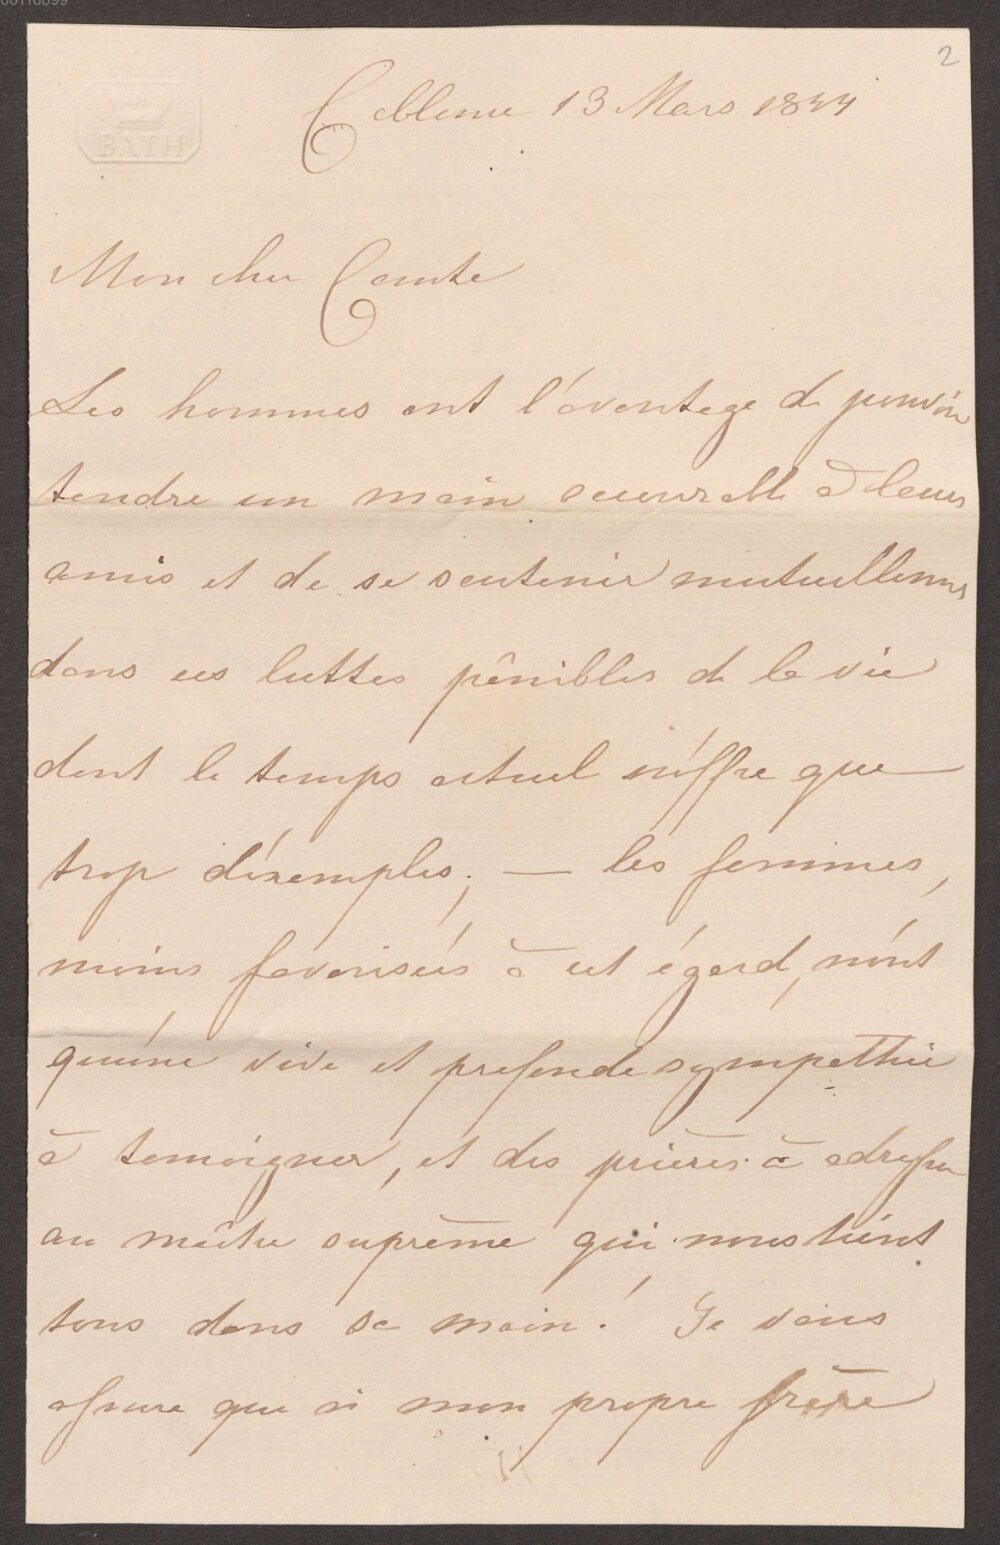 00116099
2
BATH
Coblence 13 Mars 1844
Mon cher Comte
Les hommes ont l'avantage de pouvoir
tendre un main secourable à leurs
amis et de se soutenir mutuellement
dans ces luttes pénibles de la vie
dont le temps actuel n'offre que
trop d'exemples; — les femmes,
moins favorisées à cet égard, n'ont
qu'une vive et profonde sympathie
à temoigner, et des prières à adresser
au maître suprême qui nous tient
tous dans sa main! Je vous
assure que si mon propre frère